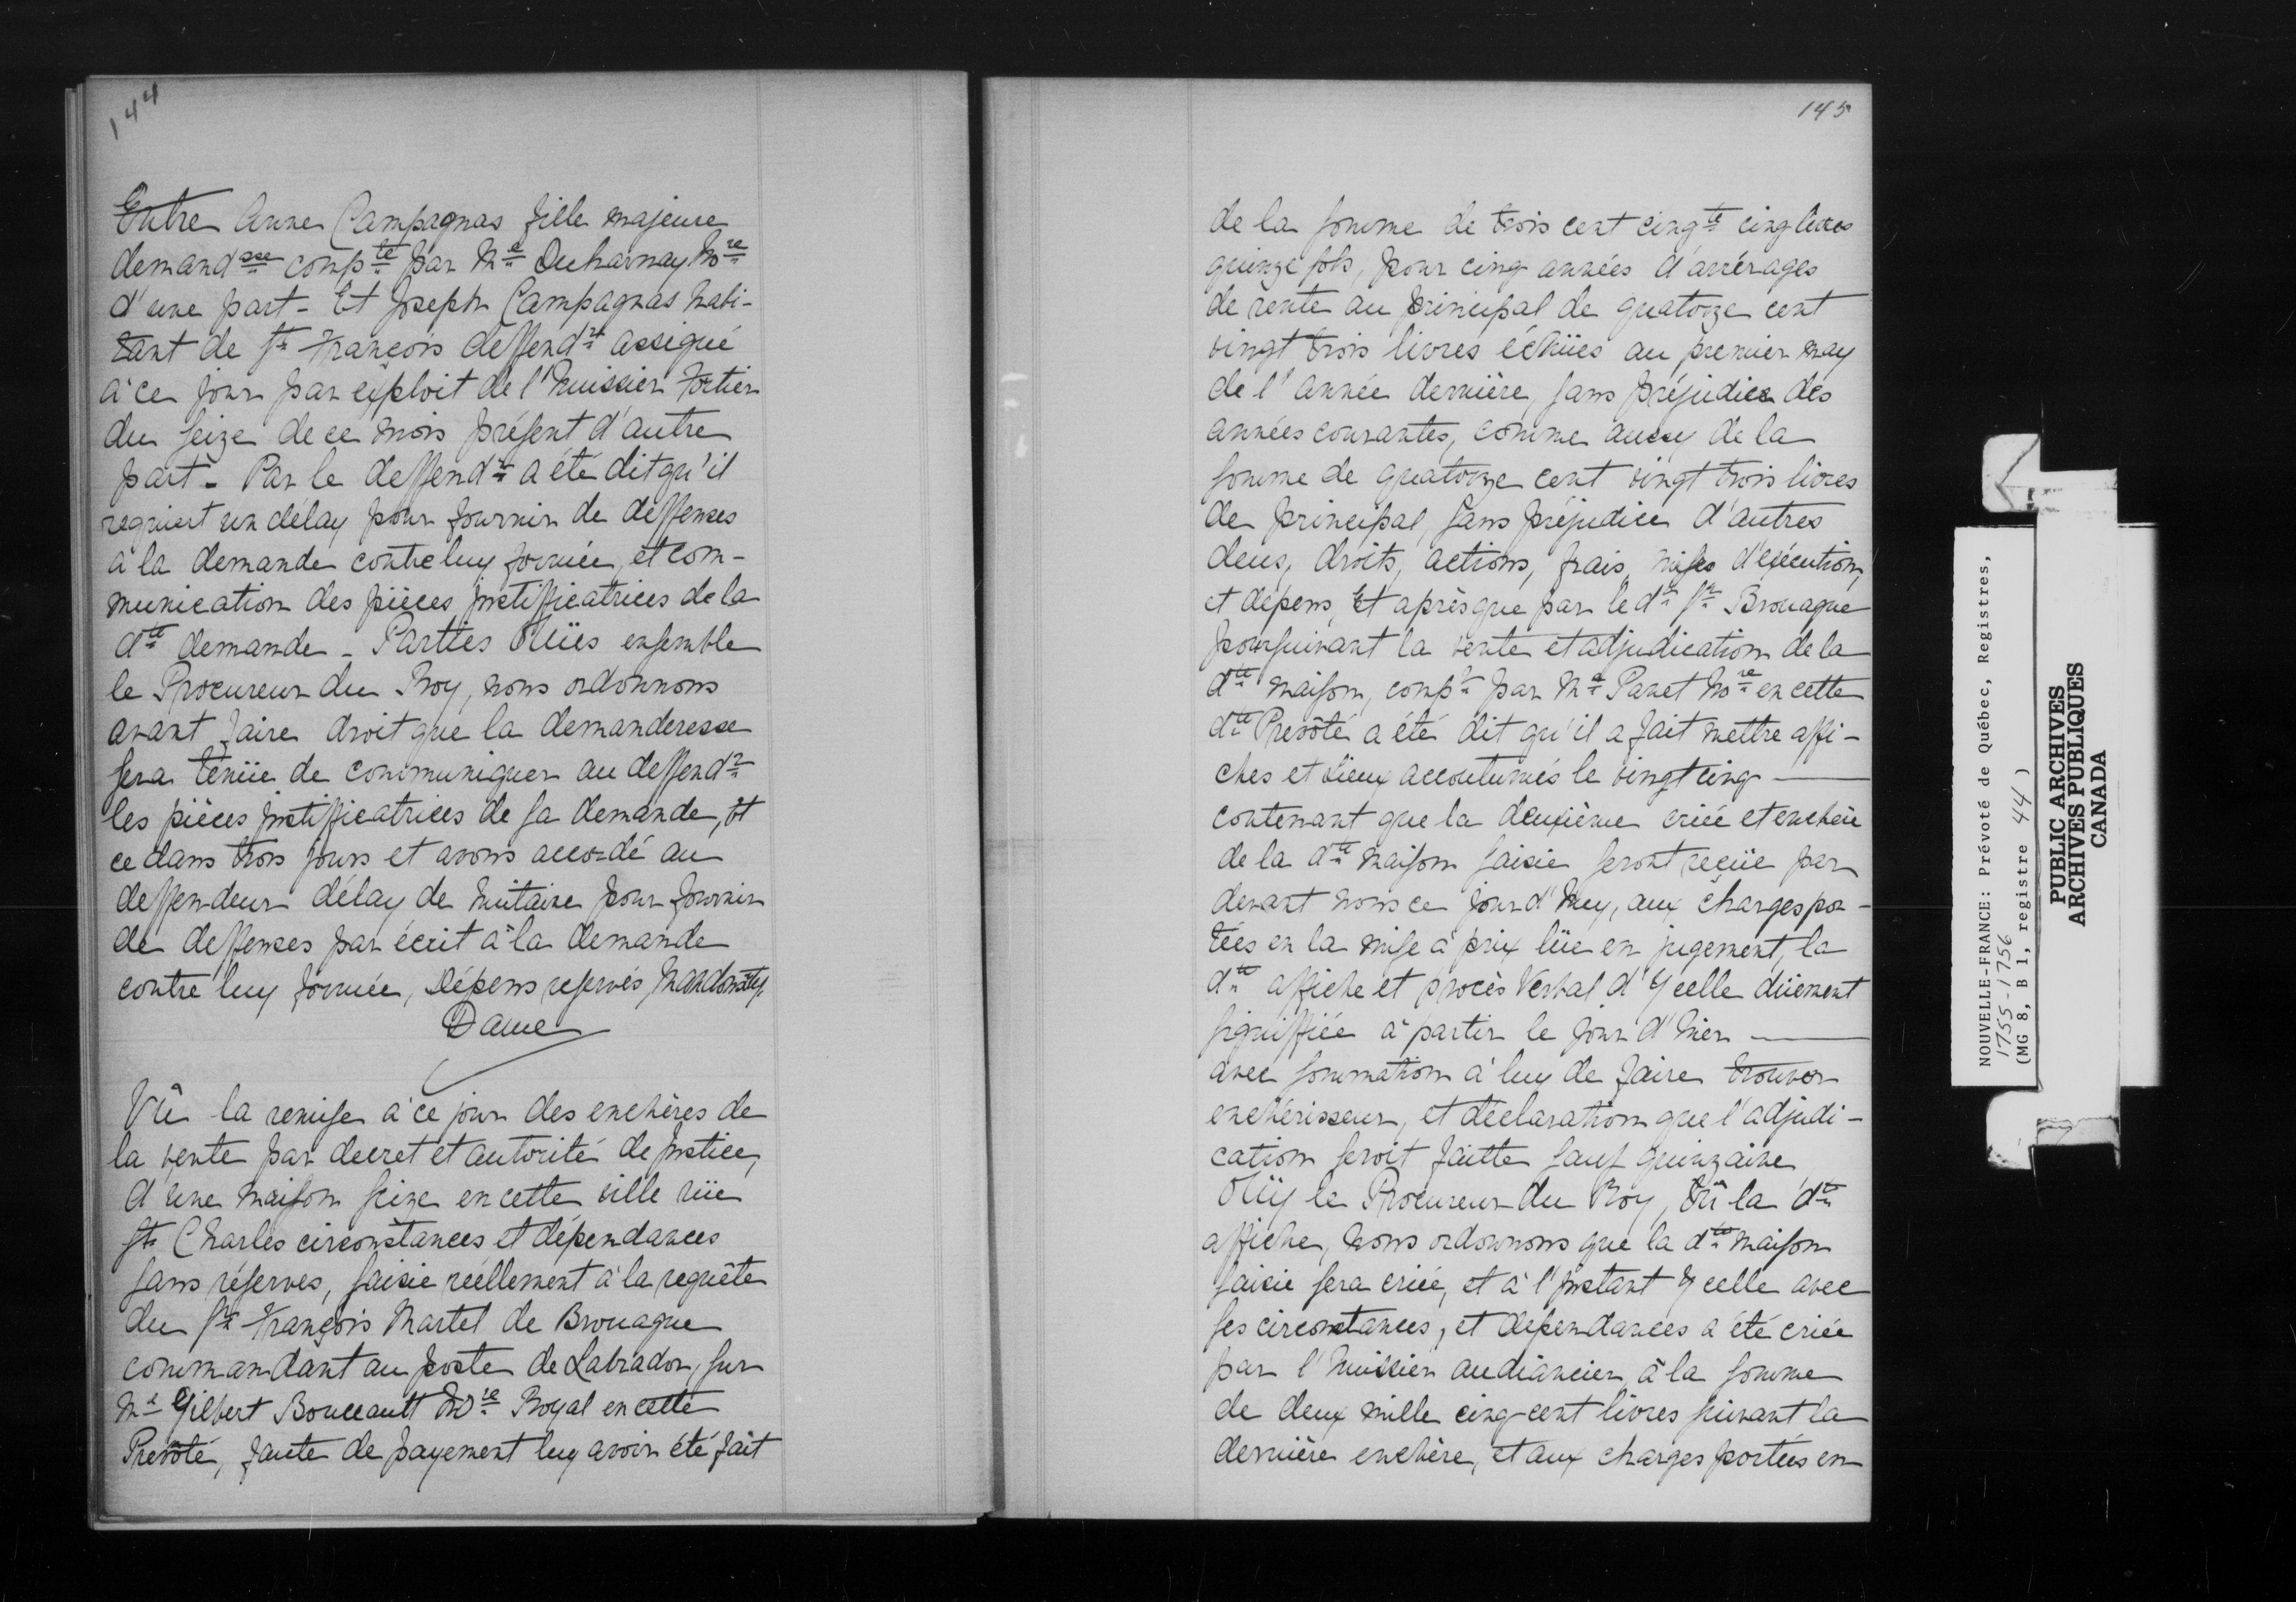 144
Entre Anne Campagnas fille majeure
demandsse compte par Me Decharnay Nore
d'une part - Et Joseph Campagnas habi-
tant de St François deffendr assigné
à ce jour par exploit de l'huissier Fortier
du seize de ce mois présent d'autre
part - Par le deffendr a été dit qu'il
requiert un délay pour fournir de deffenses
à la demande contre luy formée, et com-
munication des pièces justifficatrices de la
dte demande - Parties Oüies ensemble
le Procureur du Roy, nous ordonnons
avant faire droit que la demanderesse
sera tenüe de communiquer au deffendr
les pièces justifficatrices de sa demande, et
ce dans trois jours et avons accordé au
deffendeur délay de huitaine pour fournir
de deffenses par écrit à la demande
contre luy formée, Dépens reservés, Mandons &y.
Daine
Vû la remise à ce jour des enchères de
la vente par decret et autorité de justice,
d'une maison seize en cette ville rüe
St Charles circonstances et dépendances
sans réserves, saisie réellement à la requête
du Sr François Martel de Brouague
commandant au poste de Labrador, sur
Me Gilbert Boucault Nore Royal en cette
Prevôté, faute de payement luy avoir été fait
145
de la somme de trois cent cinqte cinq livres
quinze sols, pour cinq années d'arrérages
de rente au principal de quatorze cent
vingt trois livres échües au premier may
de l'année dernière, sans préjudice des
années courantes, comme aussy de la
somme de quatorze cent vingt trois livres
de principal, sans préjudice d'autres
deus, droits, actions, frais, mises d'exécution,
et dépens, Et après que par le dt Sr Brouague
poursuivant la vente et adjudication de la
dte maison, compt par Me Panet Nore en cette
dte Prevôté a été dit qu'il a fait mettre affi-
ches et Lieux accoutumés le vingt cinq
contenant que la deuxième criée et enchère
de la dte maison saisie seront reçüe par
devant nous ce jourd'huy, aux charges por-
tées en la mise à prix lüe en jugement, la
dte affiche et procès Verbal d'Ycelle düement
signiffiée à partir le jour d'hier
avec sommation à luy de faire trouver
enchérisseur, et déclaration que l'adjudi-
cation seroit faitte sauf quinzaine
Oüy le Procureur du Roy, Vû la dte
affiche, nous ordonnons que la dte maison
saisie sera criée, et à l'instant Ycelle avec
ses circonstances, et dépendances a été criée
par l'huissier audiancier à la somme
de deux mille cinq cent livres suivant la
dernière enchère, et aux charges portées en
NOUVELLE-FRANCE: Prévoté de Québec, Registres,
1755-1756
(MG 8, B 1, registre 44 )
PUBLIC ARCHIVES
ARCHIVES PUBLIQUES
CANADA